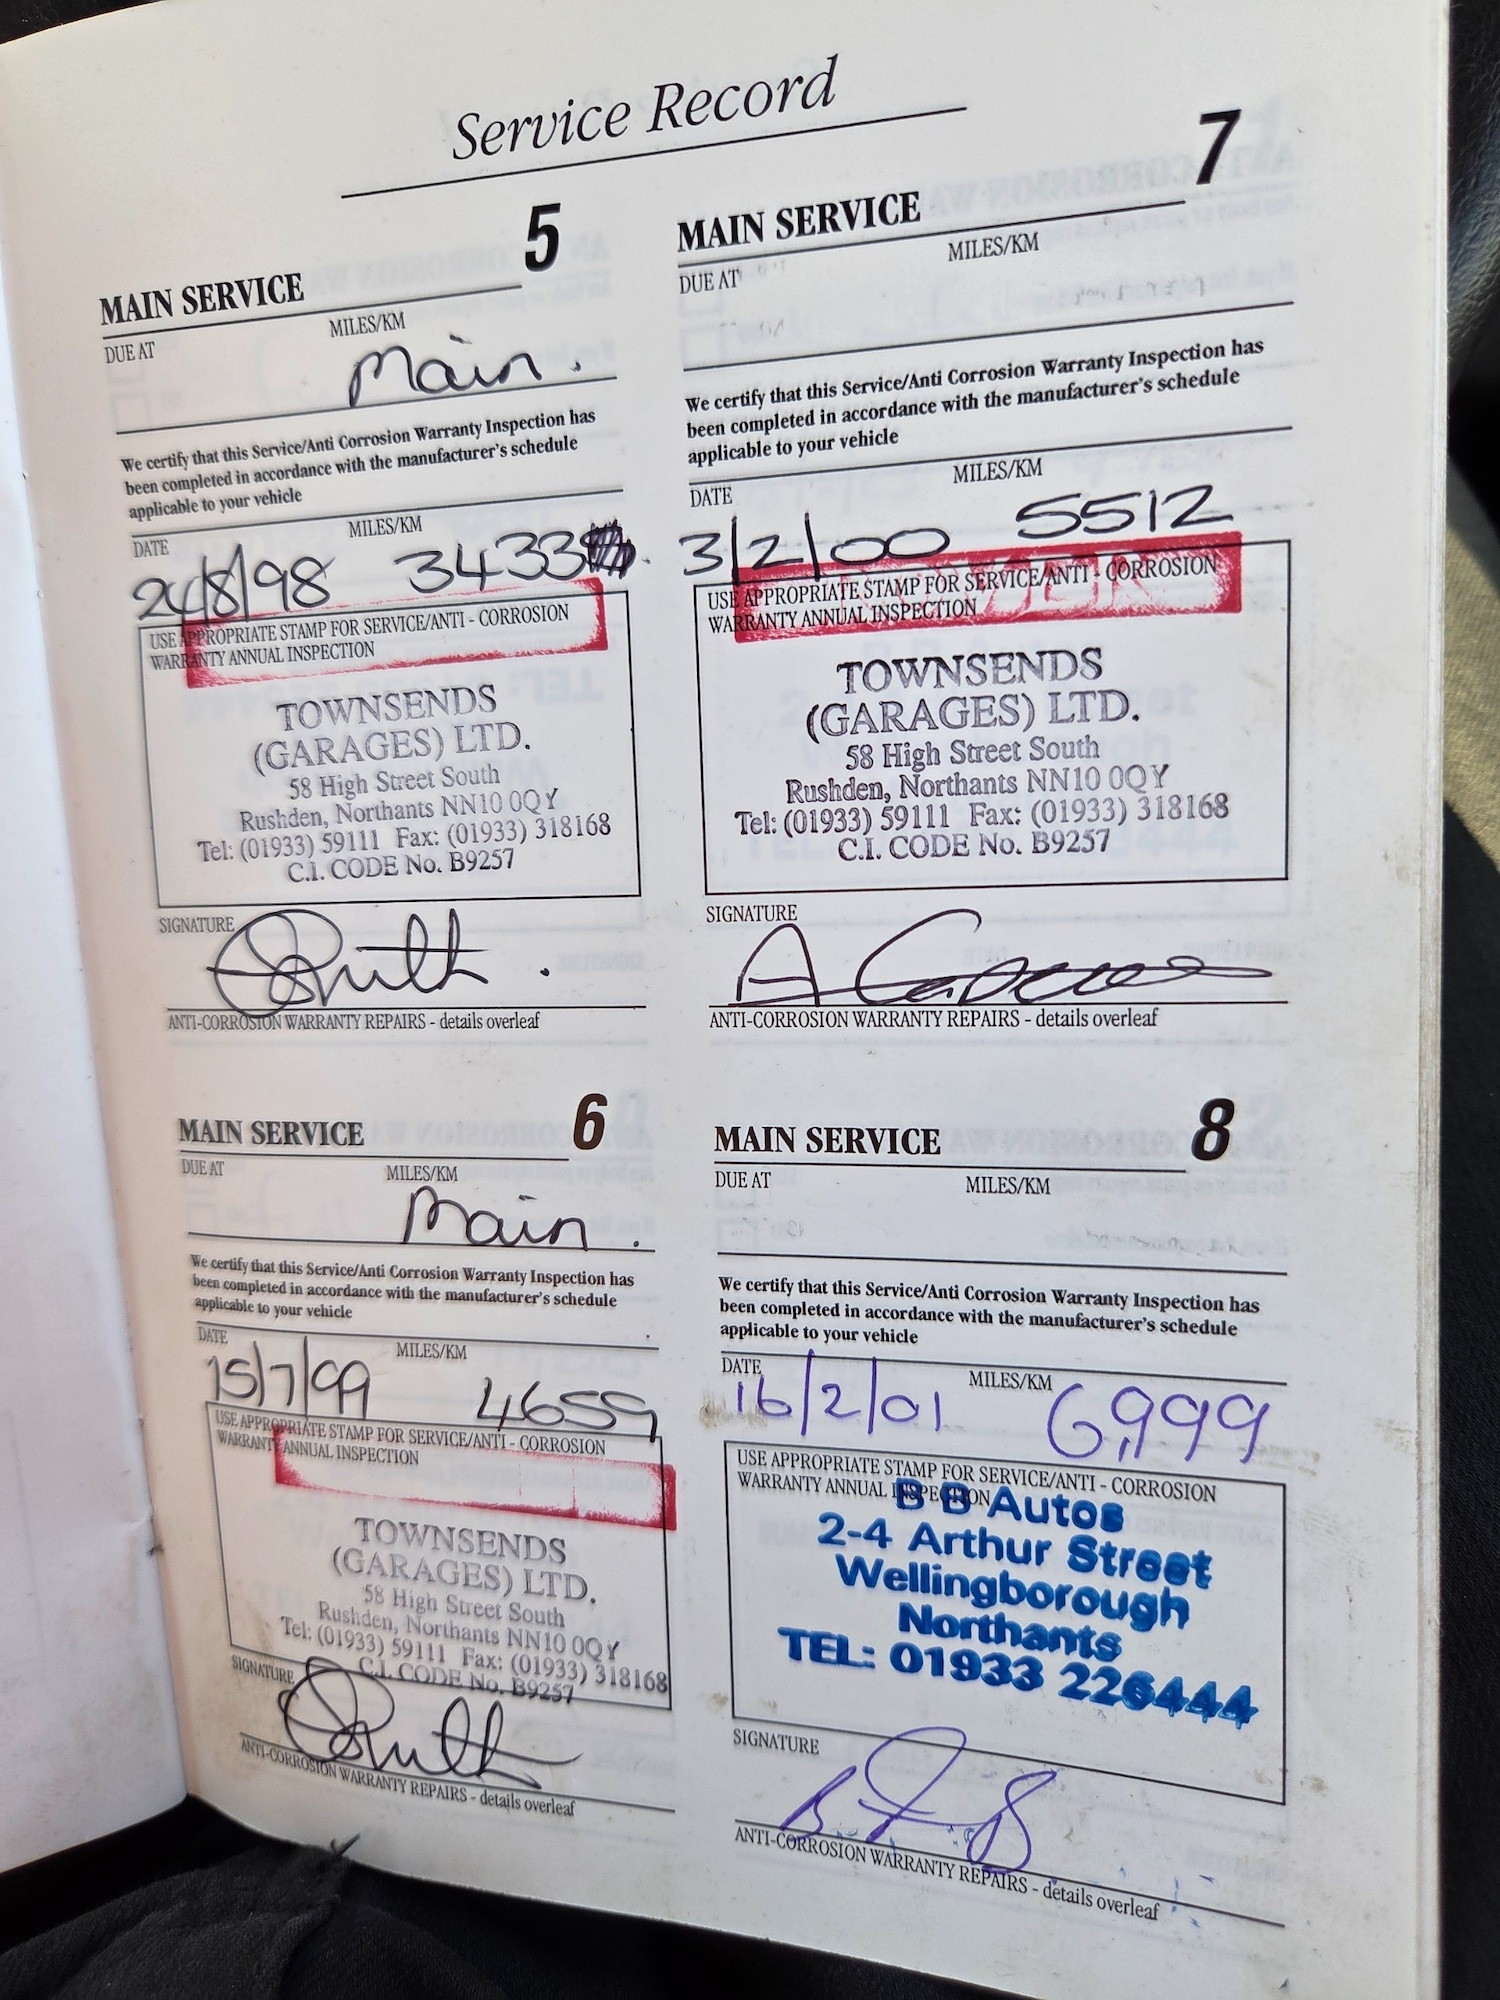 Service Record
5
MAIN SERVICE
DUE AT MILES/KM
Main.
We certify that this Service/Anti Corrosion Warranty Inspection has
been completed in accordance with the manufacturer's schedule
applicable to your vehicle
DATE MILES/KM
/8/98 3433
USE APPROPRIATE STAMP FOR SERVICE/ANTI - CORROSION
WARRANTY ANNUAL INSPECTION
TOWNSENDS
(GARAGES) LTD.
58 High Street South
Rushden, Northants NN10 0QY
Tel: (01933) 59111 Fax: (01933) 318168
C.I. CODE No. B9257
SIGNATURE
ANTI-CORROSION WARRANTY REPAIRS - details overleaf
6
MAIN SERVICE
DUE AT MILES/KM
Main.
We certify that this Service/Anti Corrosion Warranty Inspection has
been completed in accordance with the manufacturer's schedule
applicable to your vehicle
DATE MILES/KM
15/7/99 4659
USE APPROPRIATE STAMP FOR SERVICE/ANTI - CORROSION
WARRANTY ANNUAL INSPECTION
TOWNSENDS
(GARAGES) LTD.
58 High Street South
Rushden, Northants NN10 0QY
Tel: (01933) 59111 Fax: (01933) 318168
C.I. CODE No. B9257
SIGNATURE
ANTI-CORROSION WARRANTY REPAIRS - details overleaf
7
MAIN SERVICE
DUE AT MILES/KM
We certify that this Service/Anti Corrosion Warranty Inspection has
been completed in accordance with the manufacturer's schedule
applicable to your vehicle
DATE MILES/KM
3/2/00 5512
USE APPROPRIATE STAMP FOR SERVICE/ANTI - CORROSION
WARRANTY ANNUAL INSPECTION
TOWNSENDS
(GARAGES) LTD.
58 High Street South
Rushden, Northants NN10 0QY
Tel: (01933) 59111 Fax: (01933) 318168
C.I. CODE No. B9257
SIGNATURE
ANTI-CORROSION WARRANTY REPAIRS - details overleaf
8
MAIN SERVICE
DUE AT MILES/KM
We certify that this Service/Anti Corrosion Warranty Inspection has
been completed in accordance with the manufacturer's schedule
applicable to your vehicle
DATE MILES/KM
16/2/01 6,999
USE APPROPRIATE STAMP FOR SERVICE/ANTI - CORROSION
WARRANTY ANNUAL INSPECTION
B B Autos
2-4 Arthur Street
Wellingborough
Northants
TEL: 01933 226444
SIGNATURE
ANTI-CORROSION WARRANTY REPAIRS - details overleaf